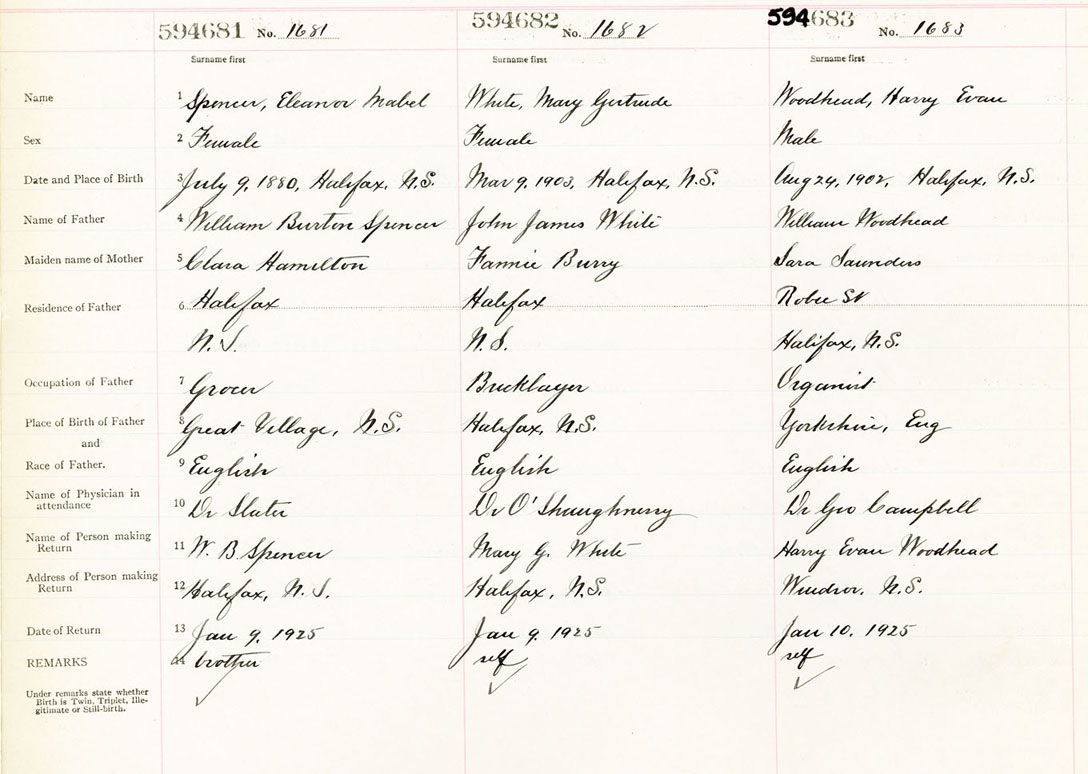 594681 No. 1681 594682 No. 1682 594683 No. 1683
Surname first Surname first Surname first
Name 1 Spencer, Eleanor Mabel White, Mary Gertrude Woodhead, Harry Evan
Sex 2 Female Female Male
Date and Place of Birth 3 July 9, 1880, Halifax, N.S. Mar 9, 1903, Halifax, N.S. Aug 24, 1902, Halifax, N.S.
Name of Father 4 William Burton Spencer John James White William Woodhead
Maiden name of Mother 5 Clara Hamilton Fannie Burry Sara Saunders
Residence of Father 6 Halifax Halifax Robie St
N.S. N.S. Halifax, N.S.
Occupation of Father 7 Grocer Bricklayer Organist
Place of Birth of Father 8 Great Village, N.S. Halifax, N.S. Yorkshire, Eng
and
Race of Father. 9 English English English
Name of Physician in
attendance 10 Dr Slater Dr O'Shaughnessy Dr Geo Campbell
Name of Person making
Return 11 W. B. Spencer Mary G. White Harry Evan Woodhead
Address of Person making
Return 12 Halifax, N.S. Halifax, N.S. Windsor, N.S.
Date of Return 13 Jan 9, 1925 Jan 9, 1925 Jan 10, 1925
REMARKS 14 brother self self
Under remarks state whether
Birth is Twin, Triplet, Ille-
gitimate or Still-birth.